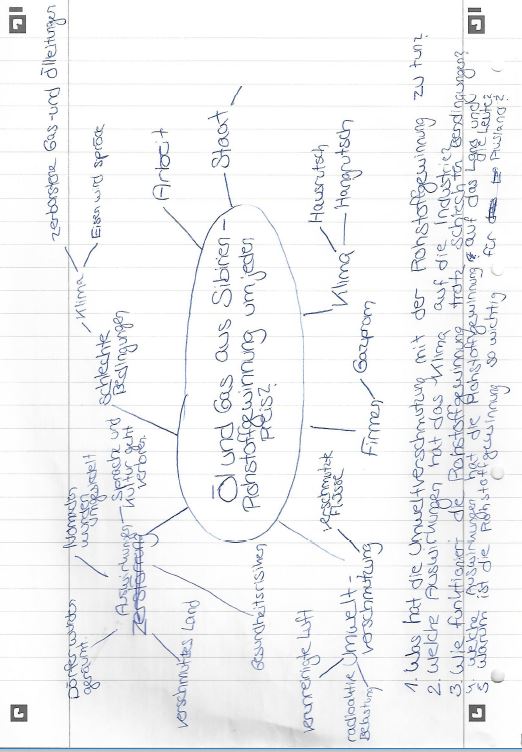 Öl und Gas aus Sibirien -
Rohstoffgewinnung um jeden
Preis?
Dörfer wurden
geräumt
Nomaden
wurden
umgesiedelt
Auswirkungen
Zerstörung
Sprache und
Kultur geht
verloren
verschmutztes Land
Gesundheitsrisiken
Schlechte
Bedingungen
Klima
zerborstene Gas- und Ölleitungen
Eisen wird spröde
Arbeit
Staat
Klima
Hausrutsch
Hangrutsch
Firmen
Gazprom
Umwelt-
verschmutzung
verschmutzte
Flüsse
verunreinigte Luft
radioaktive
Belastung
1. Was hat die Umweltverschmutzung mit der Rohstoffgewinnung zu tun?
2. Welche Auswirkungen hat das Klima auf die Industrie?
3. Wie funktioniert die Rohstoffgewinnung trotz schlechten Bendingungen?
4. Welche Auswirkungen hat die Rohstoffgewinnung auf das Land und
die Leute?
5 Warum ist die Rohstoffgewinnung so wichtig für Ausland?